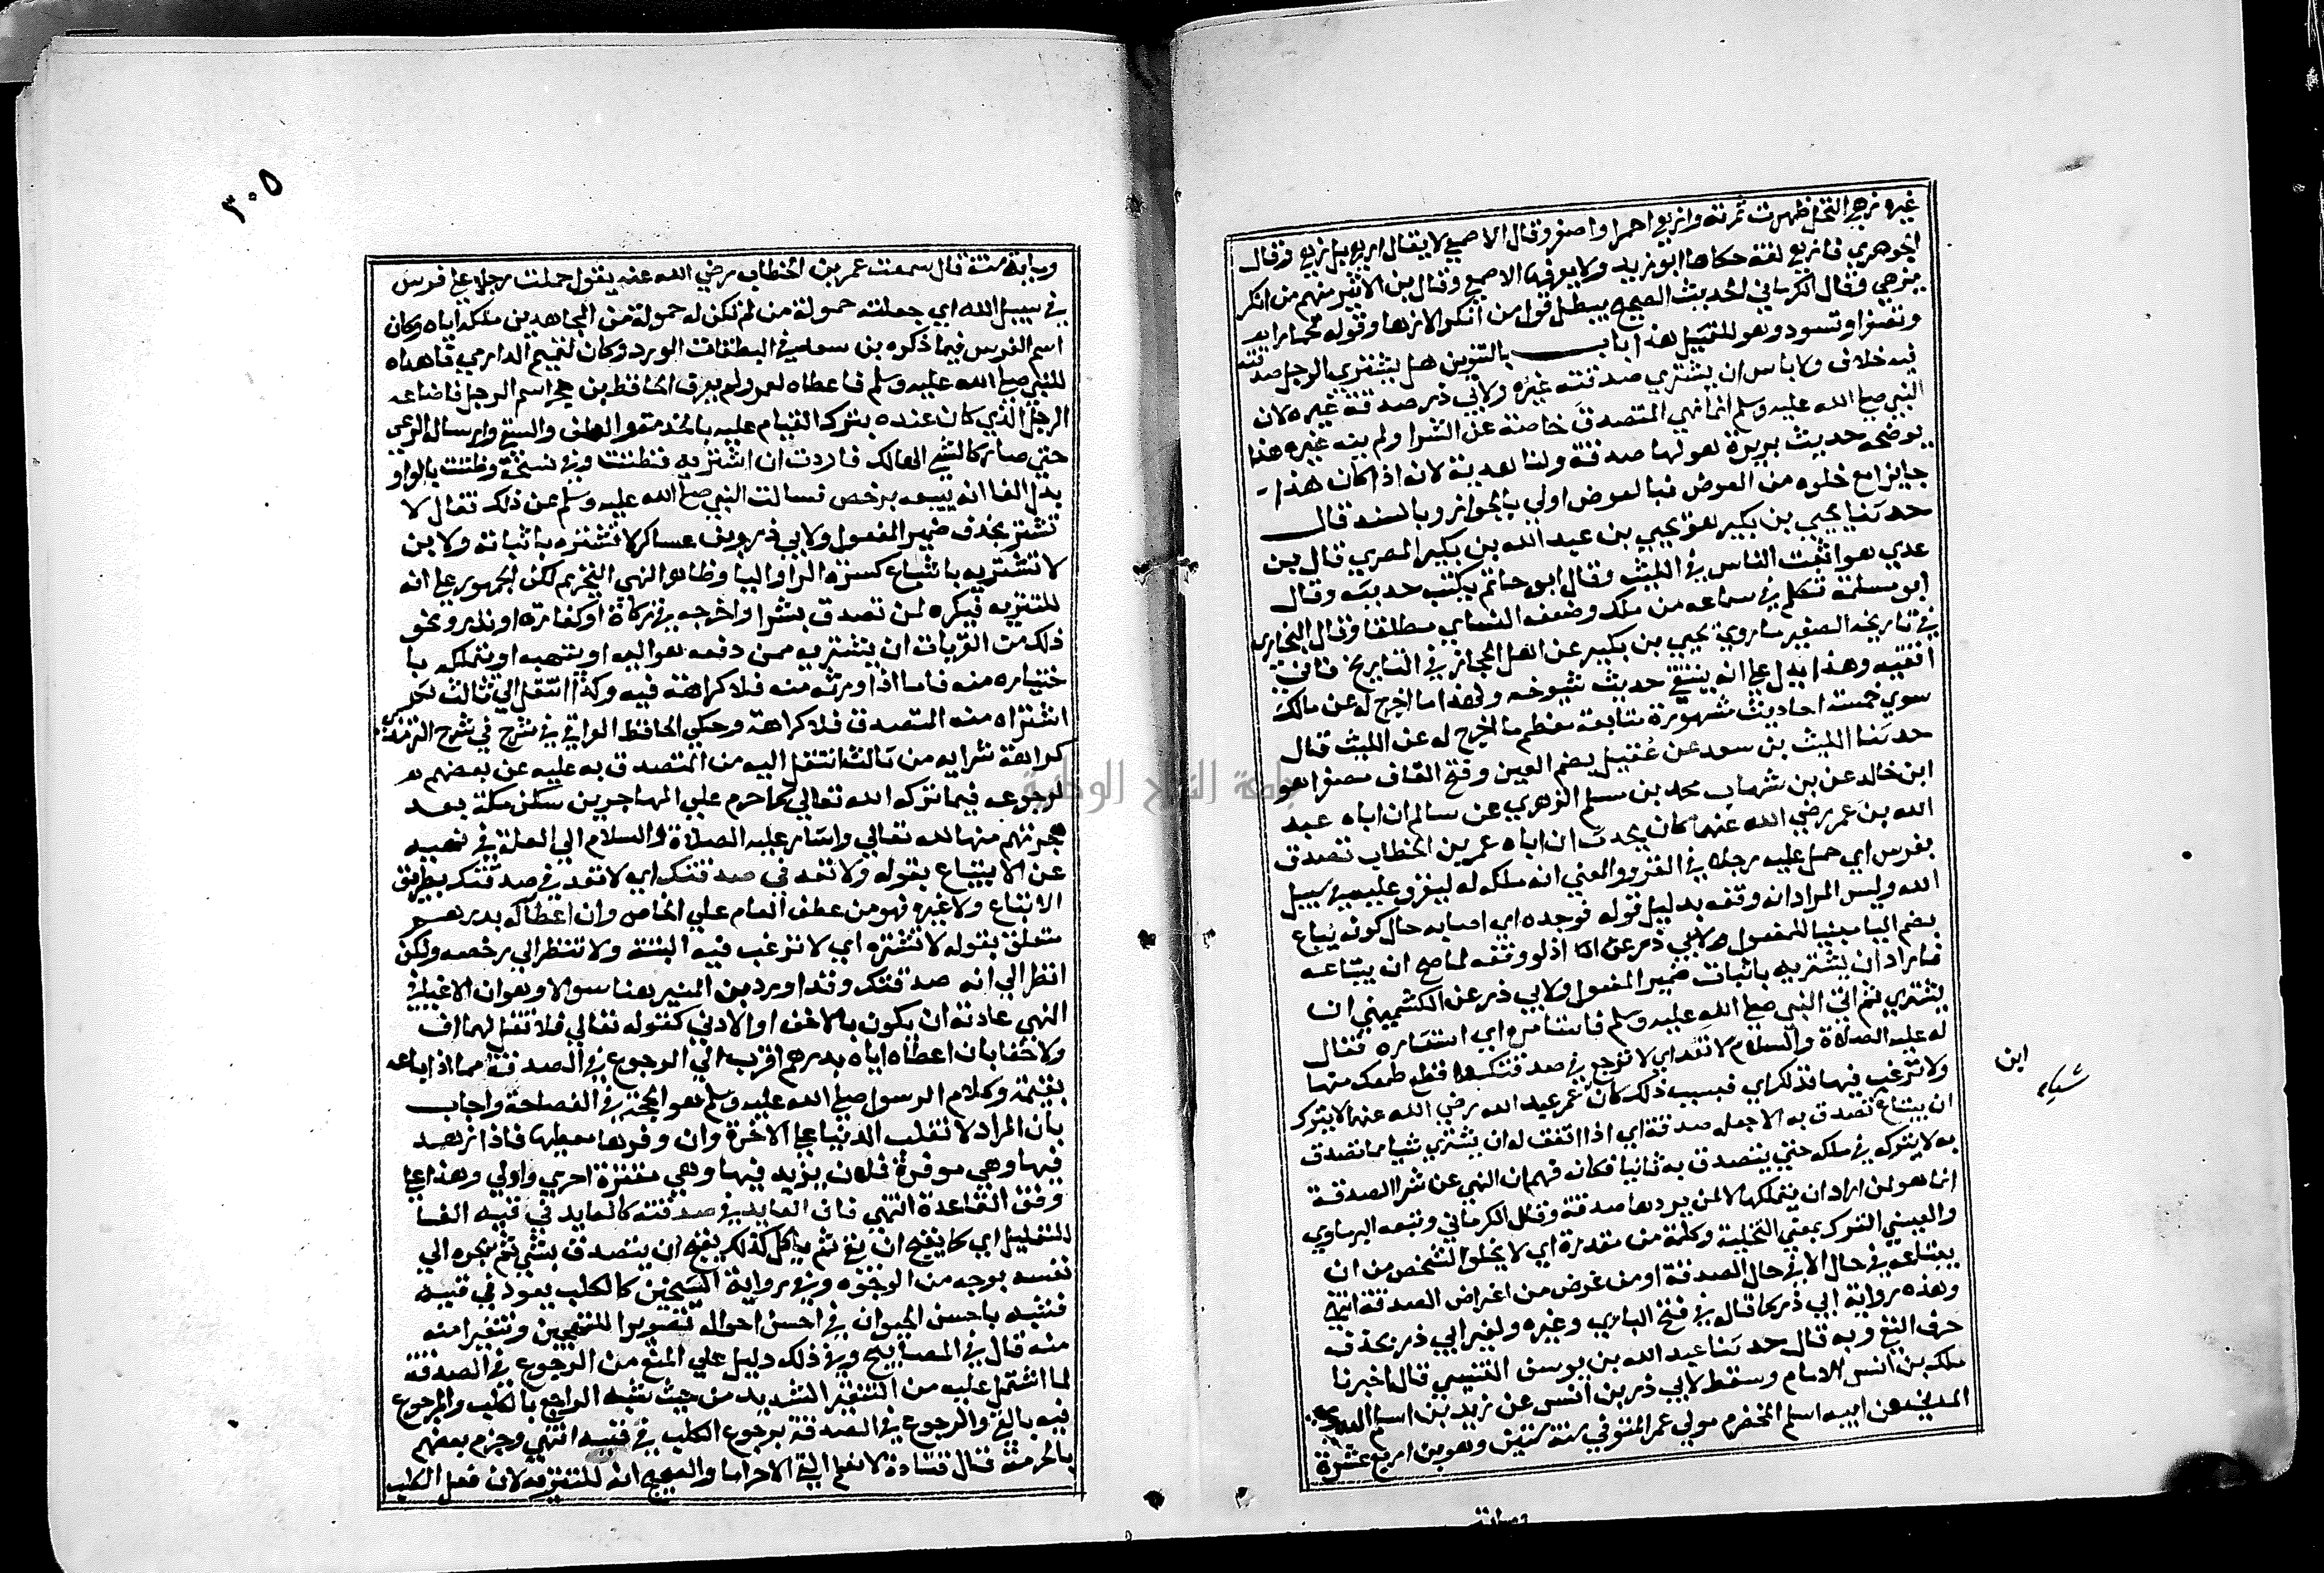 غيره زهي النخل ظهرت ثمرته وازهي احمر او اصفر وقال الاصمعي لا يقال ازهي بل زهي وقال
الجوهري فازهي لغة حكاها ابو زيد ولا يعرفها الاصمعي وقال بن الاثير منهم من انكر
يزهي وقال الكرماني الحديث الصحيح يبطل قول من انكر الازها وقوله تحمارا به
وتصفر او تسود وهو للتمثيل هذا باب بالتنوين هل يشتري الرجل صدقته
فيه خلاف ولا باس ان يشتري صدقته غيره ولابي ذر صدقة غيره لان
النبي صلي الله عليه وسلم انما نهي المتصدق خاصة عن الشرا ولم ينه غيره هذا
يوضحه حديث بريرة هو لها صدقة ولنا هدية لانه اذا كان هذا
جايزا مع خلوه من العوض فبالعوض اولي بالجواز وبالسند قال
حدثنا يحيي بن بكير هو يحيي بن عبد الله بن بكير المصري قال بن
عدي هو اثبت الناس في الليث وقال ابو حاتم يكتب حديثه وقال
ابو مسلمة تكلم في سماعه من ملك وضعفه النساي مطلقا وقال البخاري
في تاريخه الصغير ما روي يحيي بن بكير عن اهل الحجاز في التاريخ فاني
اتقيه وهذا يدل علي انه ينتقي حديث شيوخه ولهذا ما اخرج له عن مالك
سوي خمسة احاديث مشهورة متابعة معظم ما اخرج له عن الليث قال
حدثنا الليث بن سعد عن عُقيل بضم العين وفتح القاف مصغرا هو
ابن خالد عن بن شهاب محمد بن مسلم الزهري عن سالم ان اباه عبد
الله بن عمر رضي الله عنهما كان يحدث ان اباه عمر بن الخطاب تصدق
بفرس اي حمل عليه رجلا في الغزو والمعني انه ملكه له ليغزو عليه في سبيل
الله وليس المراد انه وقفه بدليل قوله فوجده اي اصابه حال كونه يباع
بضم اليا مبنيا للمفعول اذ لو وقفه لما صح ان يبتاعه
فاراد ان يشتريه باثبات ضمير المفعول ولابي ذر عن الكشميهني ان
يشتري ثم اتي النبي صلي الله عليه وسلم فاستامره اي استشاره فقال
له عليه الصلاة والسلام لا تعد اي لا ترجع في صدقتك قطع طمعك منها
ولا ترغب فيها فذلك اي فبسبب ذلك كان بن عمر عبد الله رضي الله عنه لا يترك
ان يبتاع تصدق به الا جعله صدقة اي اذا اتفق له ان يشتري شيا مما تصدق
به لا يتركه في ملكه حتي يتصدق به ثانيا فكانه فهم ان النهي عن شرا الصدقة
انما هو لمن اراد ان يتملكها لا لمن يردها صدقة وقال الكرماني وتبعه البرماوي
والعيني الترك بمعني التخلية وكلمة من مقدرة اي لا يخلو الشخص من ان
يبتاعه في حال الا في حال الصدقة او من غرض من اغراض الصدقة انتهي
وهذه رواية ابي ذر كما قال في فتح الباري وغيره ولغير ابي ذر بحذف
حرف النفي وبه قال حدثنا عبد الله بن يوسف التنيسي قال اخبرنا
ملك بن انس الامام وسقط لابي ذر بن انس عن زيد بن اسلم
المدني عن ابيه اسلم المخضرم مولي عمر المتوفي سنة ستين وهو بن اربع عشرة
ابن
شياء
وماية
٣٠٥
وماية سنة قال سمعت عمر بن الخطاب رضي الله عنه يقول حملت رجلا علي فرس
في سبيل الله اي جعلته حمولة من لم تكن له حمولة من المجاهدين ملكه اياه وكان
اسم الفرس فيما ذكره بن سعد في الطبقات الورد وكان لتميم الداري فاهداه
للنبي صلي الله عليه وسلم فاعطاه لعمر ولم يعرف الحافظ بن حجر اسم الرجل فاضاعه
الرجل الذي كان عنده بترك القيام عليه بالخدمة والعلف والسقي وارساله للرعي
حتي صار كالشي الهالك فاردت ان اشتريه فظننت وفي نسخة وظننت بالواو
بدل الفا انه يبيعه برخص فسالت النبي صلي الله عليه وسلم عن ذلك فقال لا
تشتر بحذف ضمير المفعول ولابي ذر وبن عساكر لا تشتره باثباته ولابن
لا تشتريه باشباع كسرة الرا واليا وظاهر النهي التحريم لكن الجمهور علي انه
للتنزيه فيكره لمن تصدق بشرا واخرجه في زكاة او كفارة او نذر ونحو
ذلك من القربات ان يشتريه ممن دفعه هو اليه او يتهبه او يتملكه با
ختياره منه فاما اذا ورثه منه فلا كراهة فيه وكذا انتقل الي ثالث ثم
اشتراه منه المتصدق فلا كراهة وحكي الحافظ العراقي في شرح في شرح الترمذي
كراهة شرايه من ثالث انتقل اليه من المتصدق به عليه عن بعضهم
لرجوعه فيما تركه الله تعالي كما حرم علي المهاجرين سكني مكة بعد
هجرتهم منها لله تعالي واشار عليه الصلاة والسلام الي العلة في نهيه
عن الابتياع بقوله ولا تعد في صدقتك اي لا تعد في صدقتك بطريق
الابتياع ولا غيره فهو من عطف العام علي الخاص وان اعطاكه بدرهم
متعلق بقوله لا تشتره اي لا ترغب فيه البتة ولا تنظر الي رخصه ولكن
انظر الي انه صدقتك وقد اورد بن المنير هنا سوالا وهو ان الاغيا في
النهي عادته ان يكون بالاخف او الادني كقوله تعالي فلا تقل لهما اف
ولا خفا بان اعطاه اياه بدرهم اقرب الي الرجوع في الصدقة مما اذا باعه
بقيمته وكلام الرسول صلي الله عليه وسلم هو الحجة في الفصاحة واجاب
بان المراد لا تغلب الدنيا علي الاخرة وان وفرها معطيها فاذا زهد
فيها وهي موفرة فلان يزهد فيها وهي مقترة احري واولي وهذا علي
وفق القاعدة انتهي فان العايد في صدقته كالعايد في قييه الفا
للتعليل اي كما يقبح ان يقي ثم ياكل كذلك يقبح ان يتصدق بشي ثم يجره الي
نفسه بوجه من الوجوه وفي رواية الشيخين كالكلب يعود في قييه
فشبه باخس الحيوان في اخس احواله تصويرا للتهجين وتنفيرا منه
منه قال في المصابيح وفي ذلك دليل علي المنع من الرجوع في الصدقة
لما اشتمل عليه من التنفير الشديد من حيث شبه الراجع بالكلب والمرجوع
فيه بالقي والرجوع في الصدقة برجوع الكلب في قييه انتهي وجزم بعضهم
بالحرمة قال قتادة لا نعلم القي الا حراما والصحيح انه للتنزيه لان فعل الكلب